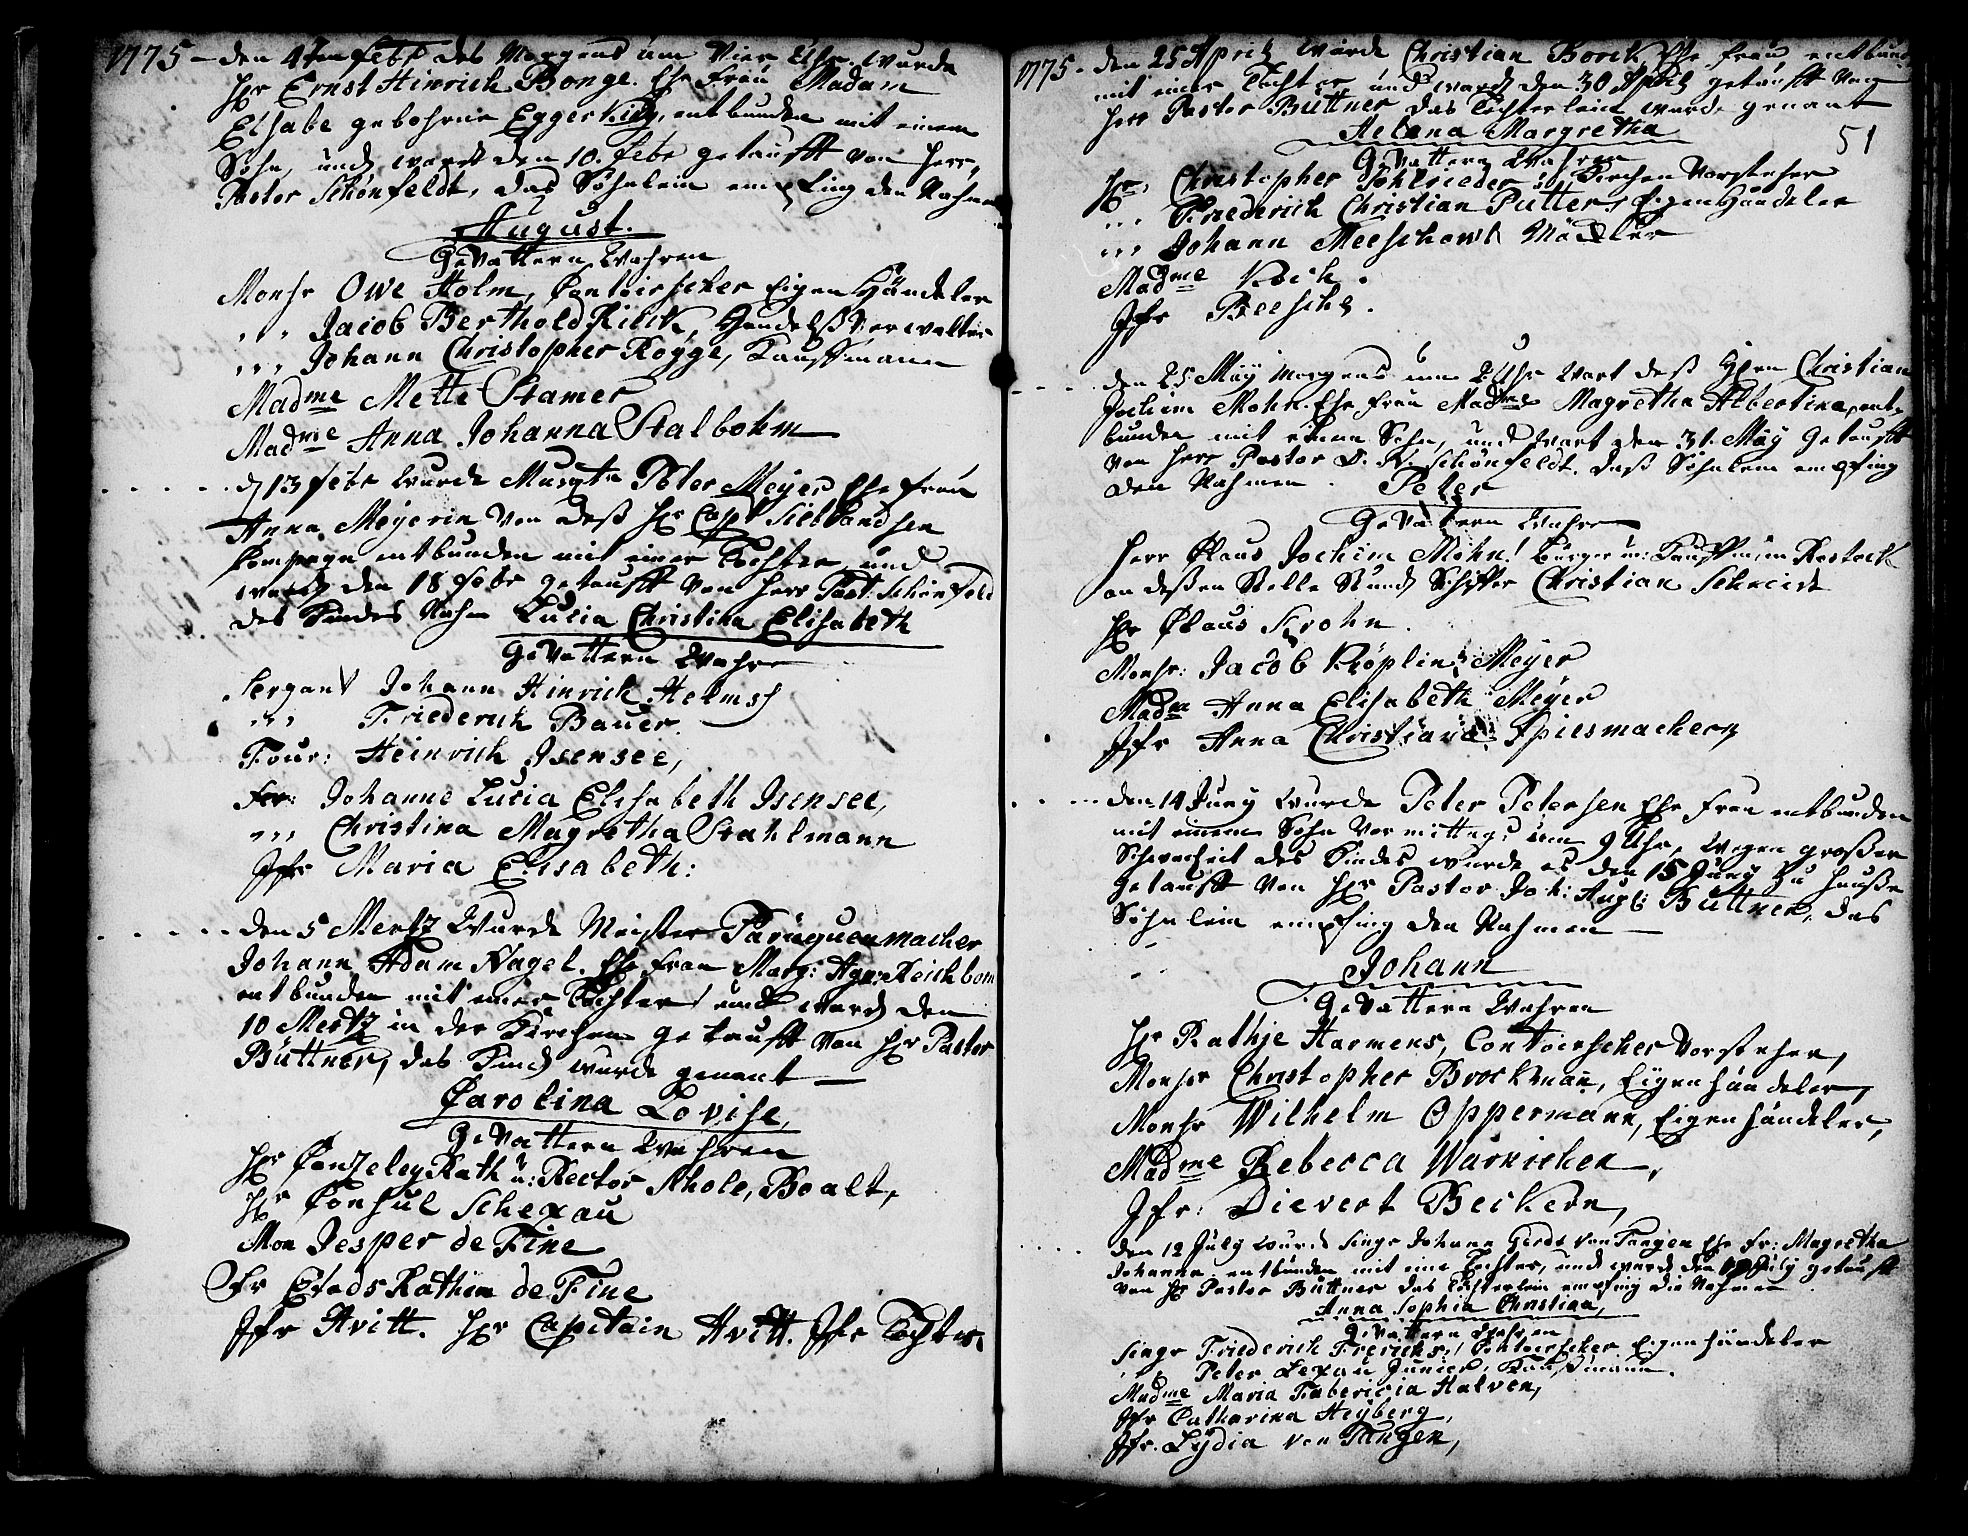 1775 – den 4ten Febr des Morgens um Vier Uhr wurde
Hr Ernst Hinrich Bonge. Ehe Frau Madam
Elsabe gebohrne Eggerking, entbunden mit einem
Sohn, und ward den 10. Febr getaufft von Herr,
Pastor Schönfeldt, das Söhnlein empfing den Nahmen
August.
Gevattern Wahren
Monsr Owe Holm, Contoirscher Eigen Händeler
,,, Jacob Berthold Kilck, Handelß Verwalter
,,, Johann Christopher Rogge, Kauffmann
Madme Mette Kramer
Madme Anna Johanna Stalbohm
d 13 Febr wurde Musqtr Peter Meyer Ehe Frau
Anna Meyerin von deß Hr Capt Siebl andsen
Compagn entbunden mit einer Tochter und
ward den 18 Febr getaufft von Herr Past: Schönfeld
des Kindes Nahm Lucia Christina Elisabeth
Gevattern Wahr
Sergant Johann Hinrich Helms
,,, Friederich Bauer.
Four: Heinrich Isensee,
Fr: Johanne Lucia Elisabeth Isensee,
,,, Christina Magretha Stahlmann
Jfr Maria Elisabeth:
den 5 Mertz Wurde Meister Parüquenmacher
Johann Adam Nagel. Ehe Frau Marg: Agn: Reichborn
entbunden mit einer Tochter, und ward den
10 Mertz in der Kirchen getaufft von Hr Pastor
Büttner, das Kind wurde genant
Carolina Lovise,
Gevattern Wahren
Hr Cantzeley Rath u: Rector Schole, Boalt,
Hr Consul Schexau
Mon Jesper de Fine
Fr Etads Räthin de Fine
Jfr Hvitt. Hr Capitain Hvitt. Jfr Tochter.
1775. den 25 April wurde Christian Borck Ehe Frau entbund
mit einer Tochter und ward den 30 April getaufft von
Herr Pastor Büttner das Töchterlein wurde genant
Helena Margretha
51
Gevattern Wahren
Hr, Christopher Fohlrieder, Kirchen Vorsteher
,,, Friederich Christian Putter, Eigen Händeler
,,, Johann Meeschow Mäckler
Madme Kock.
Jfr Beesche.
den 25 May Morgens um 2 Uhr Wart deß Hren Christian
Jochim Mohn. Ehe Frau Madme Magretha Albertina, ent,
bunden mit einem Sohn, und Wart den 31. May Getaufft
von Herr Pastor D. N. Schönfeldt. daß Söhnlein empfing
den Nahmen. Peter
Gevattern Wahr
Herr Claus Jochim Mohn! Bürger u: Kauffm: in Rostock
an deßen Stelle Stund Schiffer Christian Schmidt
Hr Claus Krohn.
Monsr: Jacob Köplin Meyer
Madm Anna Elisabeth Meyer
Jfr Anna Christiana Spiesmachern
den 14 Juny Wurde Peter Petersen Ehe Frau entbunden
mit einem Sohn Vormittags um 9 Uhr, Wegen großer
Schwacheit des Kindes wurde es den 15 Juny zu Hauße
getaufft von Hr Pastor Joh: Augt: Büttner, das
Söhnlein empfing den Nahmen
Johann
Gevattern Wahren
Hr Rathje Harmens, Contoirscher Vorsteher,
Monsr Christopher Brockmann, Eigenhändeler,
Monsr Wilhelm Oppermann, Eigenhändeler,
Madme Rebecca Warnichen,
Jfr: Dievert Beckern,
den 12 July wurd Singr Johann Gerdt von Tangen Ehe Fr: Magretha
Johanna entbunden mit eine Tochter, und ward den July getaufft
von Hr Pastor Büttner das Töchterlein empfing die Nahmen
Anna Sophia Christina,
Gevattern Wahren
Singr Friederich Frerichs, Contoirscher Eigenhändeler
,,, Peter Lexau Junior, Kauffmann.
Madme Maria Fabericia Halven,
Jfr Catharina Heyberg,
Jfr. Lydia von Tangen,